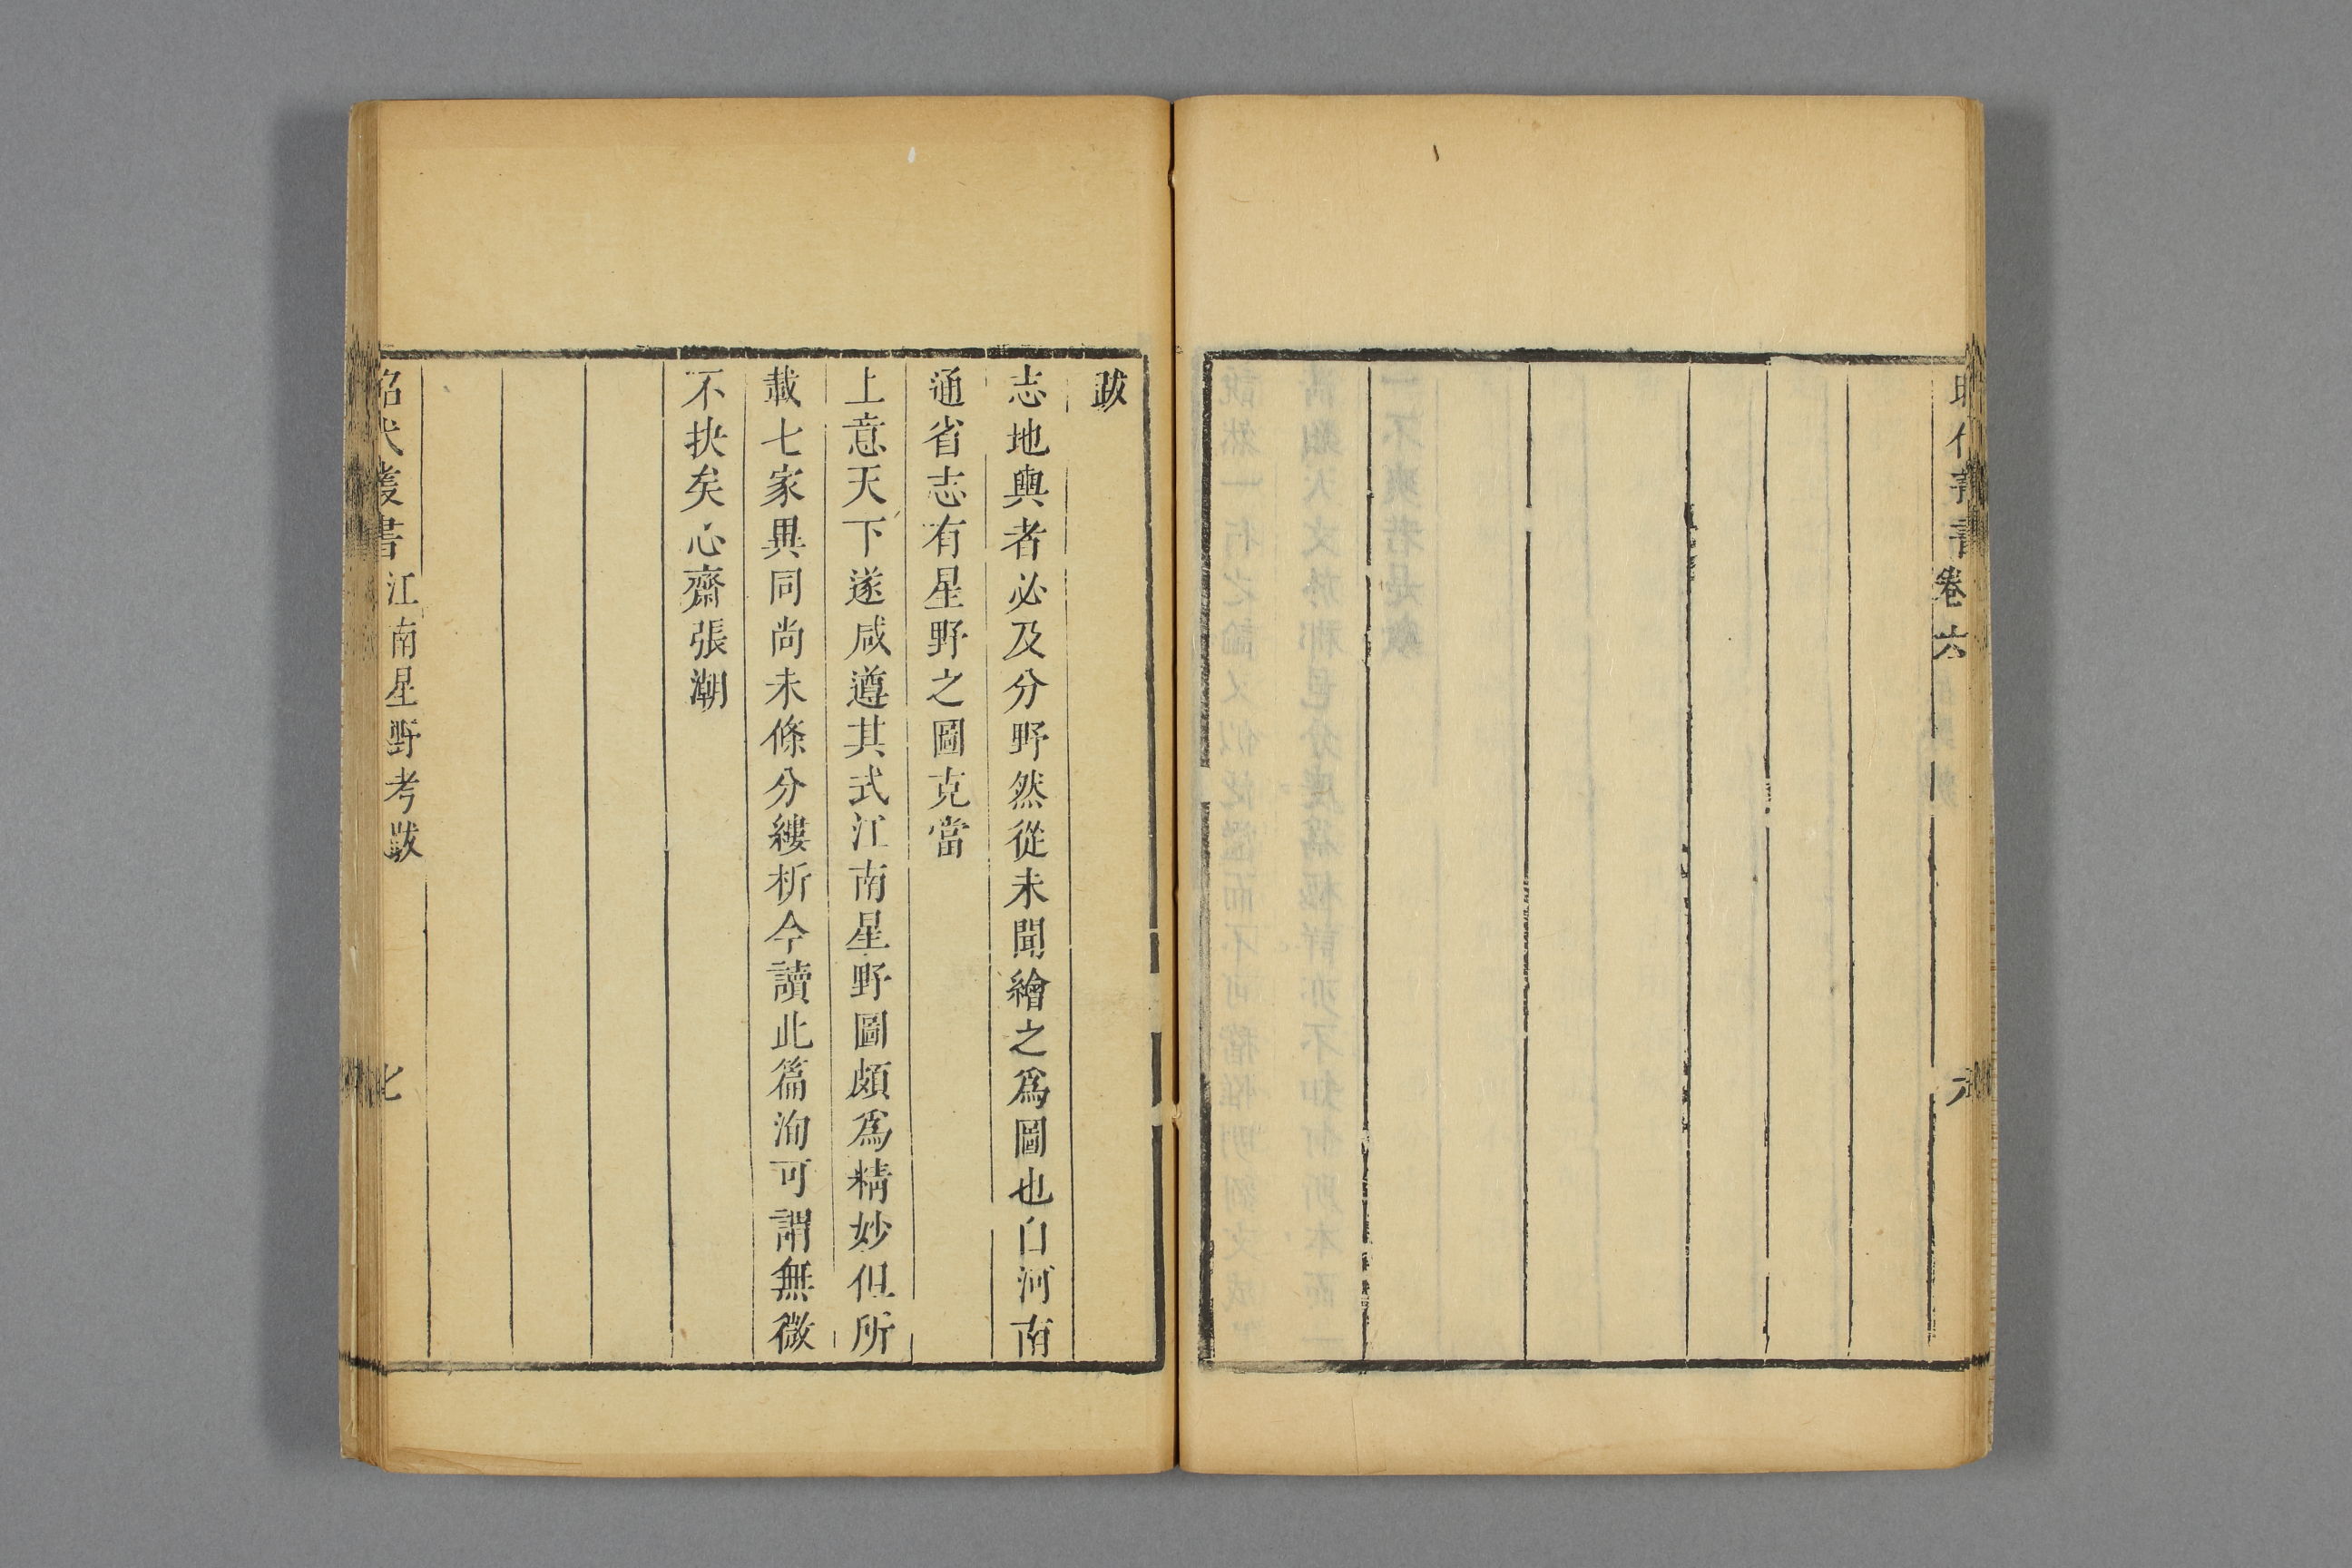 昭代叢書 卷六 六
跋
志地輿者必及分野然從未聞繪之爲圖也自河南
通省志有星野之圖克當
上意天下遂咸遵其式江南星野圖頗爲精妙但所
載七家異同尚未條分縷析今讀此篇洵可謂無微
不抉矣心齋張潮
昭代叢書 江南星野考跋 七